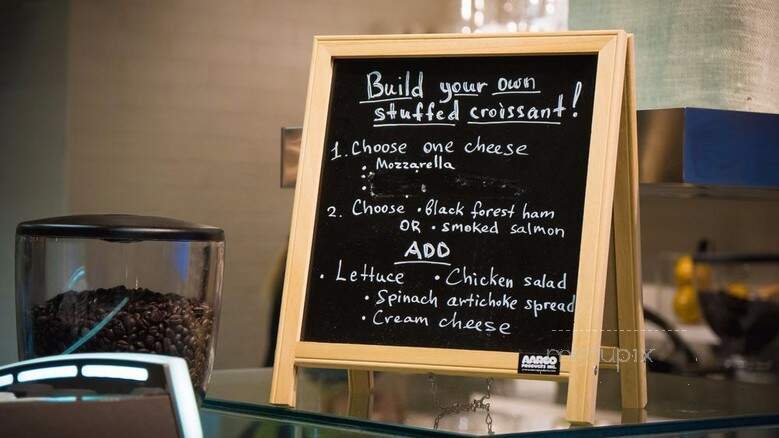 Build your own
stuffed croissant!
1. Choose one cheese
• Mozzarella
•
•
2. Choose • black forest ham
OR • smoked salmon
ADD
• Lettuce • Chicken salad
• Spinach artichoke spread
• Cream cheese
AARCO
PRODUCTS INC.